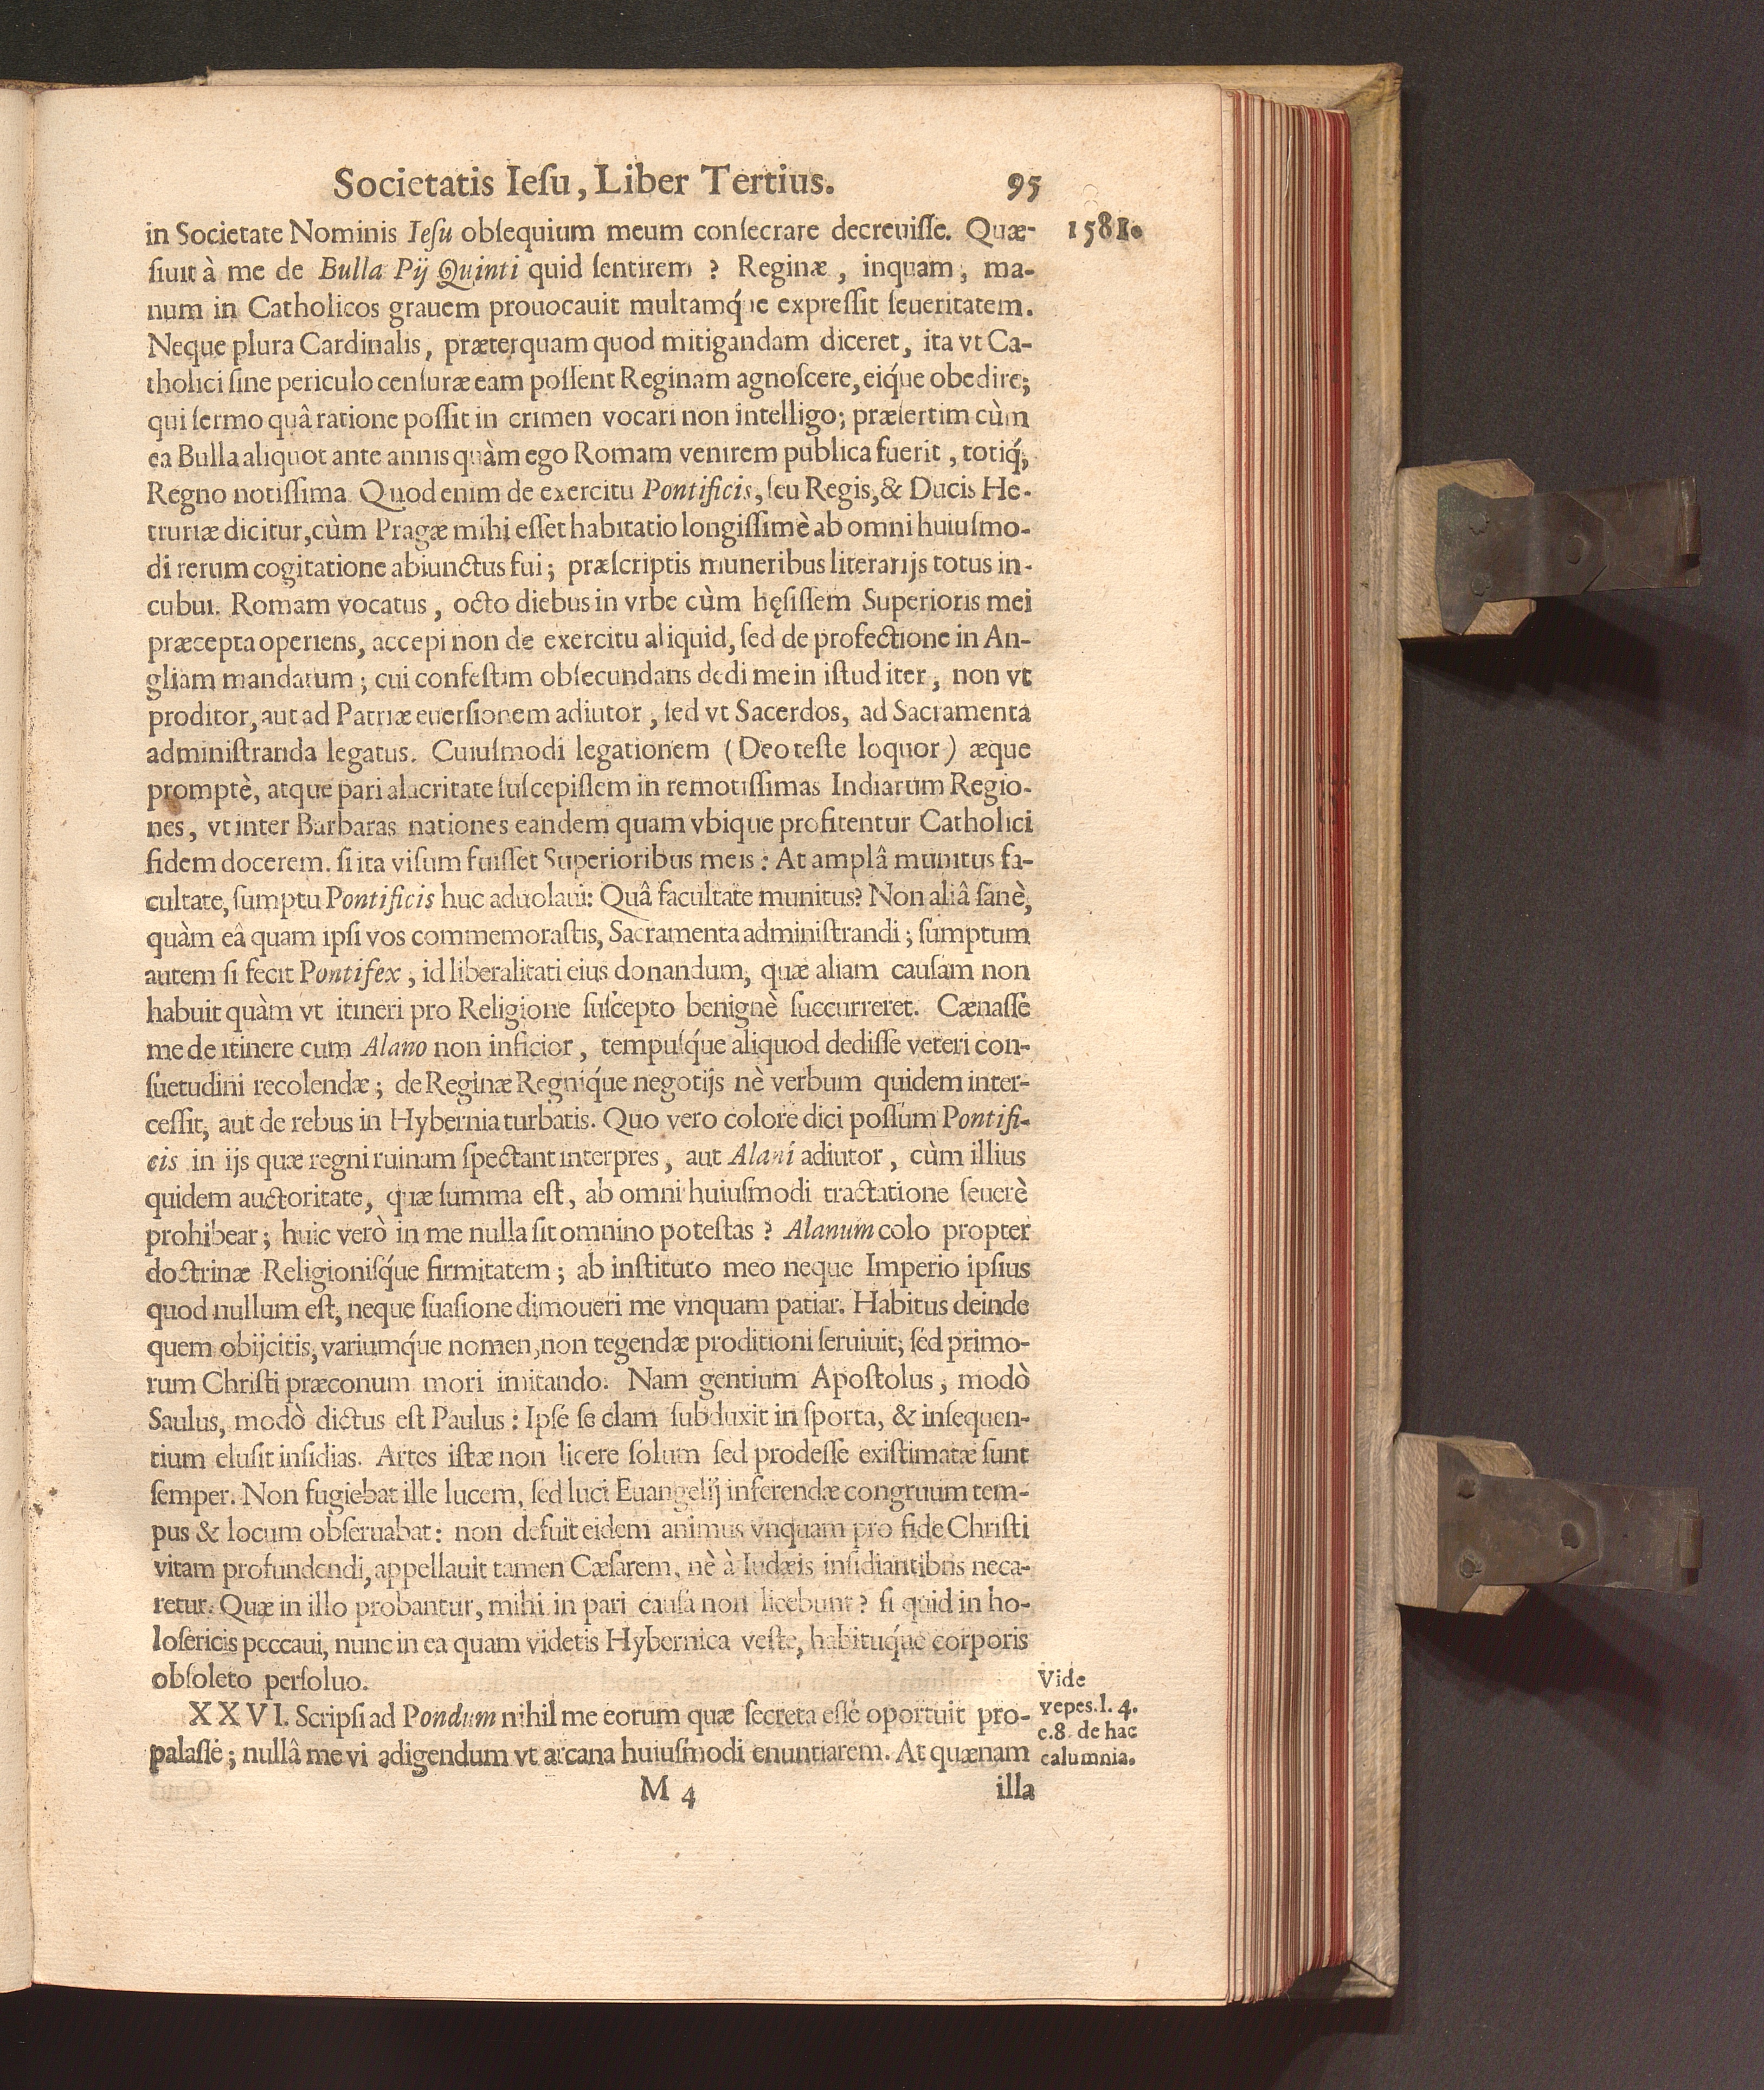 Societatis Iesu, Liber Tertius. 95
in Societate Nominis Iesu obsequium meum consecrare decreuisse. Quæ- 1581.
siuit à me de Bulla Pij Quinti quid sentirem ? Reginæ , inquam , ma-
num in Catholicos grauem prouocauit multamq́ue expressit seueritatem.
Neque plura Cardinalis, præterquam quod mitigandam diceret, ita vt Ca-
tholici sine periculo censuræ eam possent Reginam agnoscere, eiq́ue obedire;
qui sermo quâ ratione possit in crimen vocari non intelligo; præsertim cùm
ea Bulla aliquot ante annis quàm ego Romam venirem publica fuerit , totiq́;
Regno notissima. Quod enim de exercitu Pontificis, seu Regis, & Ducis He-
truriæ dicitur, cùm Pragæ mihi esset habitatio longissimè ab omni huiusmo-
di rerum cogitatione abiunctus fui ; præscriptis muneribus literarijs totus in-
cubui. Romam vocatus , octo diebus in vrbe cùm hęsissem Superioris mei
præcepta operiens, accepi non de exercitu aliquid, sed de profectione in An-
gliam mandatum ; cui confestim obsecundans dedi me in istud iter , non vt
proditor, aut ad Patriæ euersionem adiutor , sed vt Sacerdos, ad Sacramenta
administranda legatus. Cuiusmodi legationem ( Deo teste loquor ) æque
promptè, atque pari alacritate suscepissem in remotissimas Indiarum Regio-
nes , vt inter Barbaras nationes eandem quam vbique profitentur Catholici
fidem docerem. si ita visum fuisset Superioribus meis : At amplâ munitus fa-
cultate, sumptu Pontificis huc aduolaui: Quâ facultate munitus? Non aliâ sanè,
quàm eâ quam ipsi vos commemorastis, Sacramenta administrandi ; sumptum
autem si fecit Pontifex , id liberalitati eius donandum, quæ aliam causam non
habuit quàm vt itineri pro Religione suscepto benignè succurreret. Cænasse
me de itinere cum Alano non inficior , tempusq́ue aliquod dedisse veteri con-
suetudini recolendæ ; de Reginæ Regniq́ue negotijs nè verbum quidem inter-
cessit, aut de rebus in Hybernia turbatis. Quo vero colore dici possum Pontifi-
cis in ijs quæ regni ruinam spectant interpres , aut Alani adiutor , cùm illius
quidem auctoritate, quæ summa est , ab omni huiusmodi tractatione seuerè
prohibear ; huic verò in me nulla sit omnino potestas ? Alanum colo propter
doctrinæ Religionisq́ue firmitatem ; ab instituto meo neque Imperio ipsius
quod nullum est, neque suasione dimoueri me vnquam patiar. Habitus deinde
quem obijcitis, variumq́ue nomen, non tegendæ proditioni seruiuit; sed primo-
rum Christi præconum mori imitando. Nam gentium Apostolus , modò
Saulus, modò dictus est Paulus : Ipse se clam subduxit in sporta, & insequen-
tium elusit insidias. Artes istæ non licere solum sed prodesse existimatæ sunt
semper. Non fugiebat ille lucem, sed luci Euangelij inferendæ congruum tem-
pus & locum obseruabat : non defuit eidem animus vnquam pro fide Christi
vitam profundendi, appellauit tamen Cæsarem, nè à Iudæis insidiantibus neca-
retur. Quæ in illo probantur, mihi in pari causa non licebunt ? si quid in ho-
losericis peccaui, nunc in ea quam videtis Hybernica veste, habituq́ue corporis
obsoleto persoluo.
XXVI. Scripsi ad Pondum nihil me eorum quæ secreta esse oportuit pro-
palasse ; nullâ me vi adigendum vt arcana huiusmodi enuntiarem. At quænam
Vide
Yepes. l. 4.
c. 8. de hac
calumnia.
M 4 illa